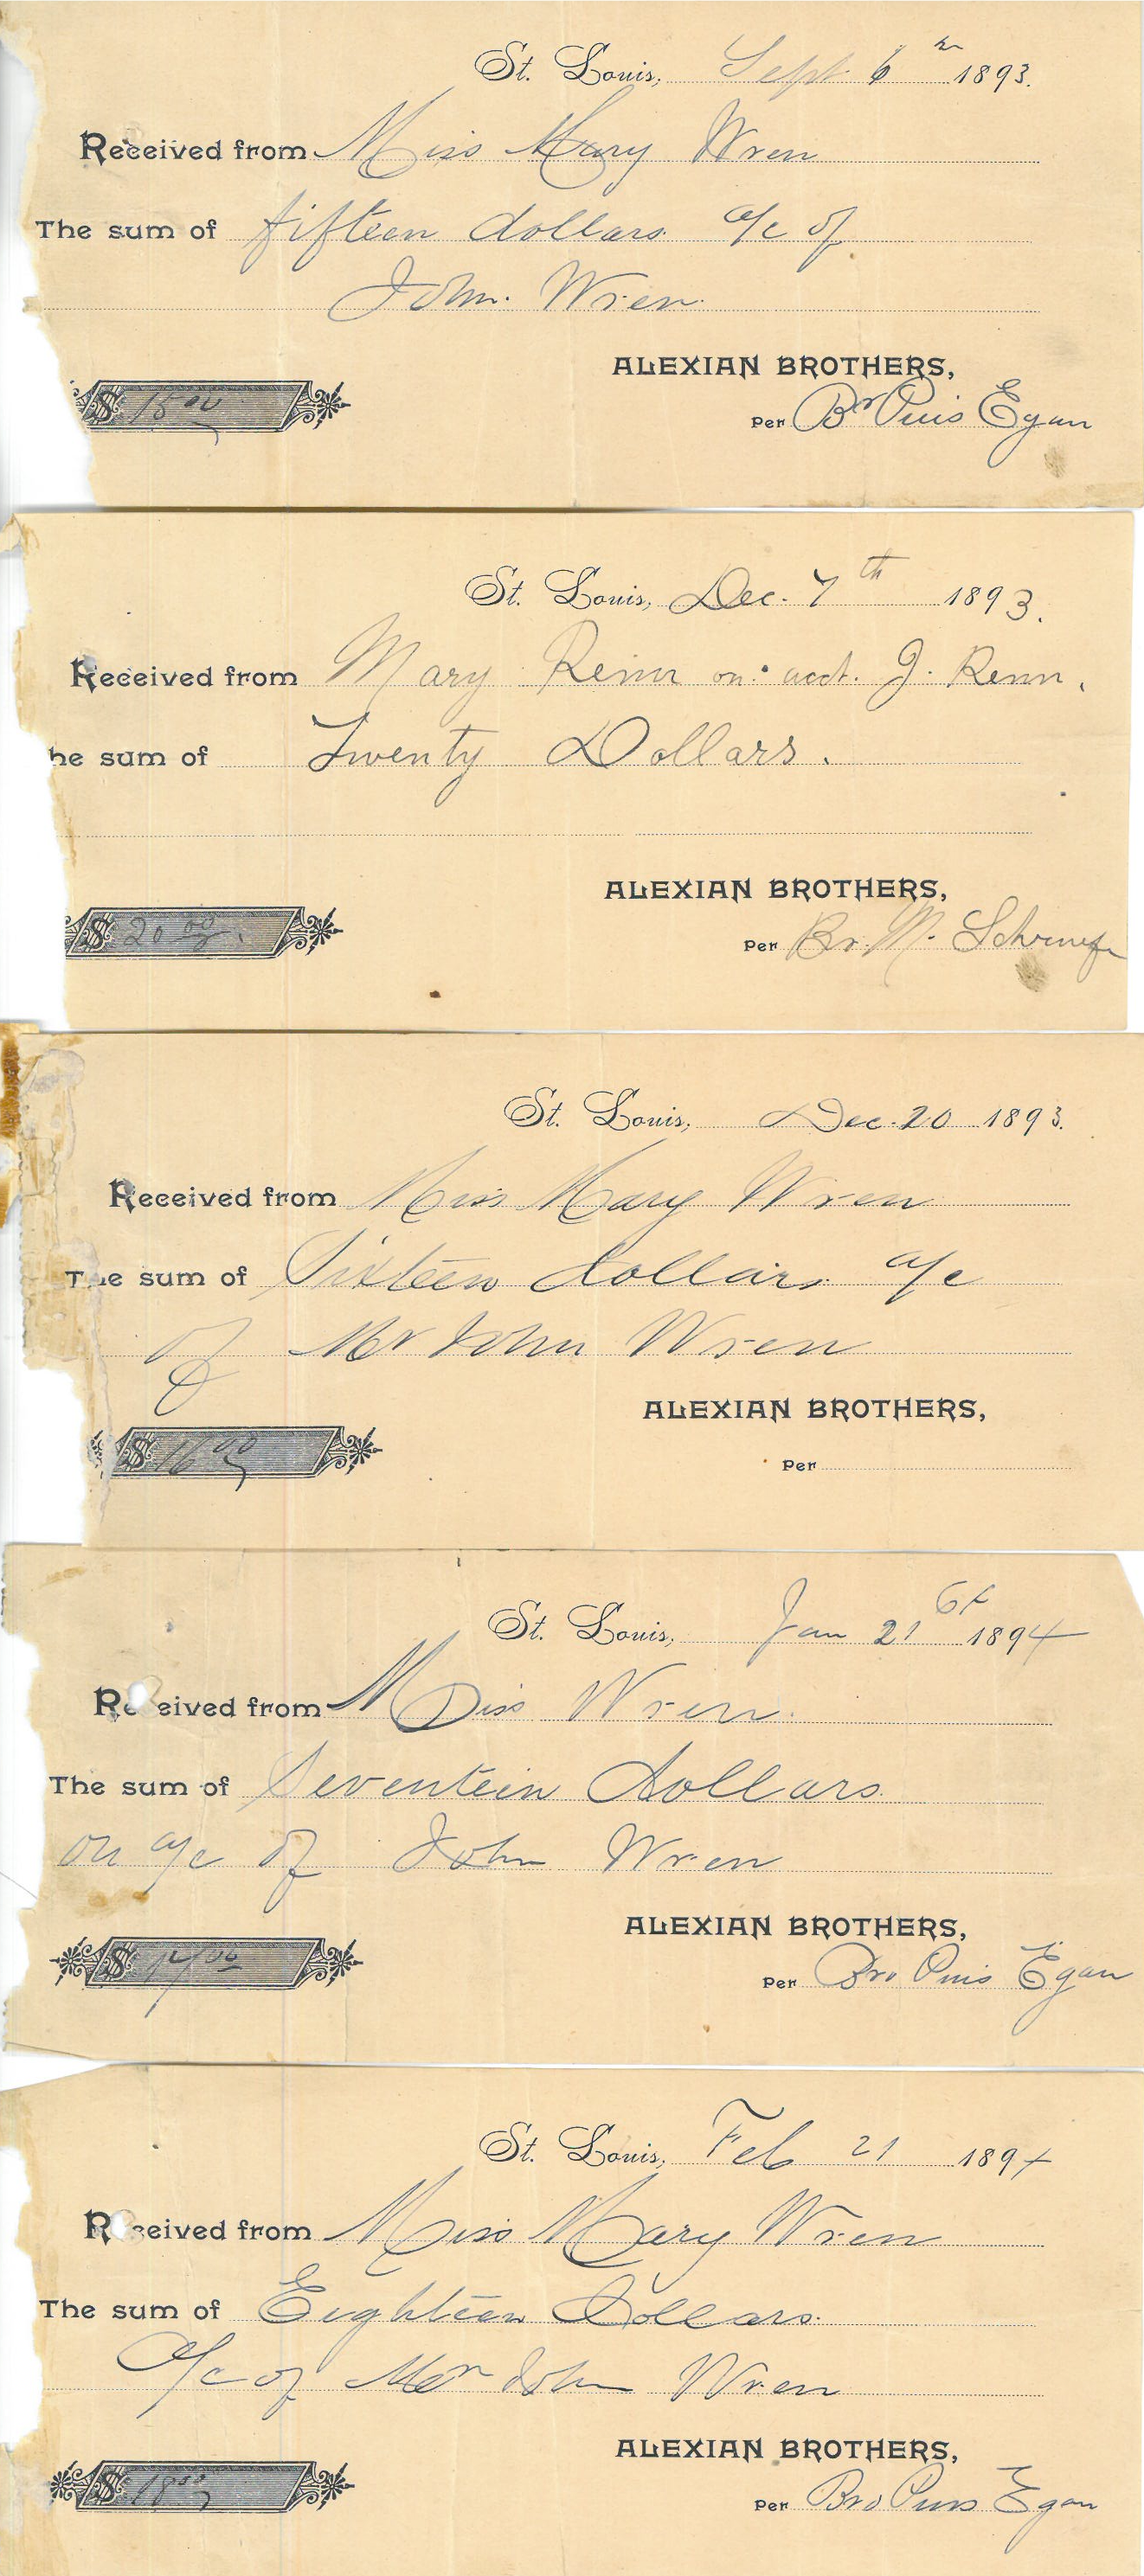 St. Louis, Sept 6 1893.
Received from Miss Mary Wren
The sum of fifteen dollars a/c of
John. Wren.
ALEXIAN BROTHERS,
$ 15 00
Per Br Puis Egan
St. Louis, Dec. 7th 1893.
Received from Mary Renn on acct. J. Renn.
he sum of Twenty Dollars.
ALEXIAN BROTHERS,
$ 20 00
Per Br. M.
St. Louis, Dec. 20 1893.
Received from Miss Mary Wren
The sum of Sixteen dollars a/c
of Mr John Wren
ALEXIAN BROTHERS,
$ 16 00
Per
St. Louis, Jan 21 1894
Received from Miss Wren.
The sum of Seventein Dollars
on a/c of John Wren
ALEXIAN BROTHERS,
$ 17 00
Per Bro Puis Egan
St. Louis, Feb 21 1894
Received from Miss Mary Wren
The sum of Eighteen Dollars.
a/c of Mr John Wren
ALEXIAN BROTHERS,
$ 18 00
Per Bro Puis Egan